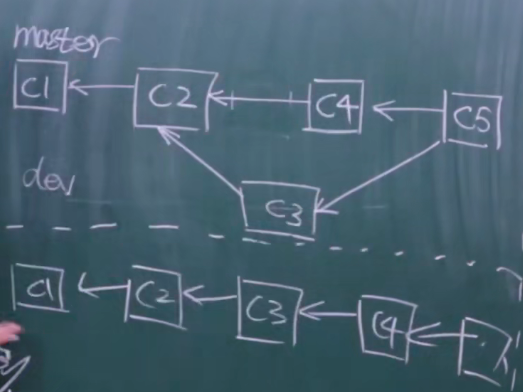 master
C1 C2 C4 C5
dev
C3
C1 C2 C3 C4